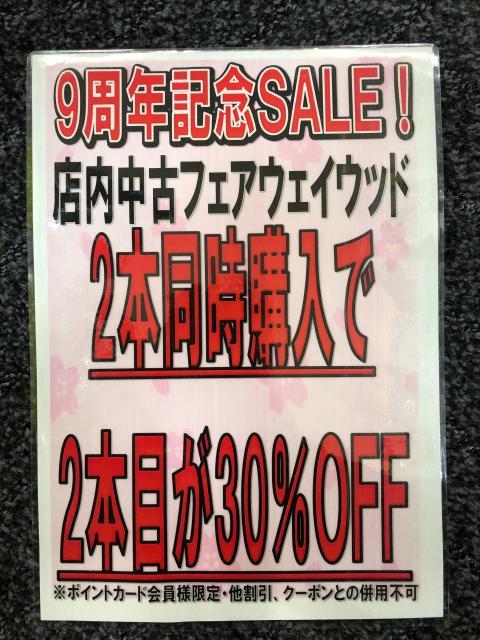 9周年記念SALE！
店内中古フェアウェイウッド
2本同時購入で
2本目が30%OFF
※ポイントカード会員様限定・他割引、クーポンとの併用不可